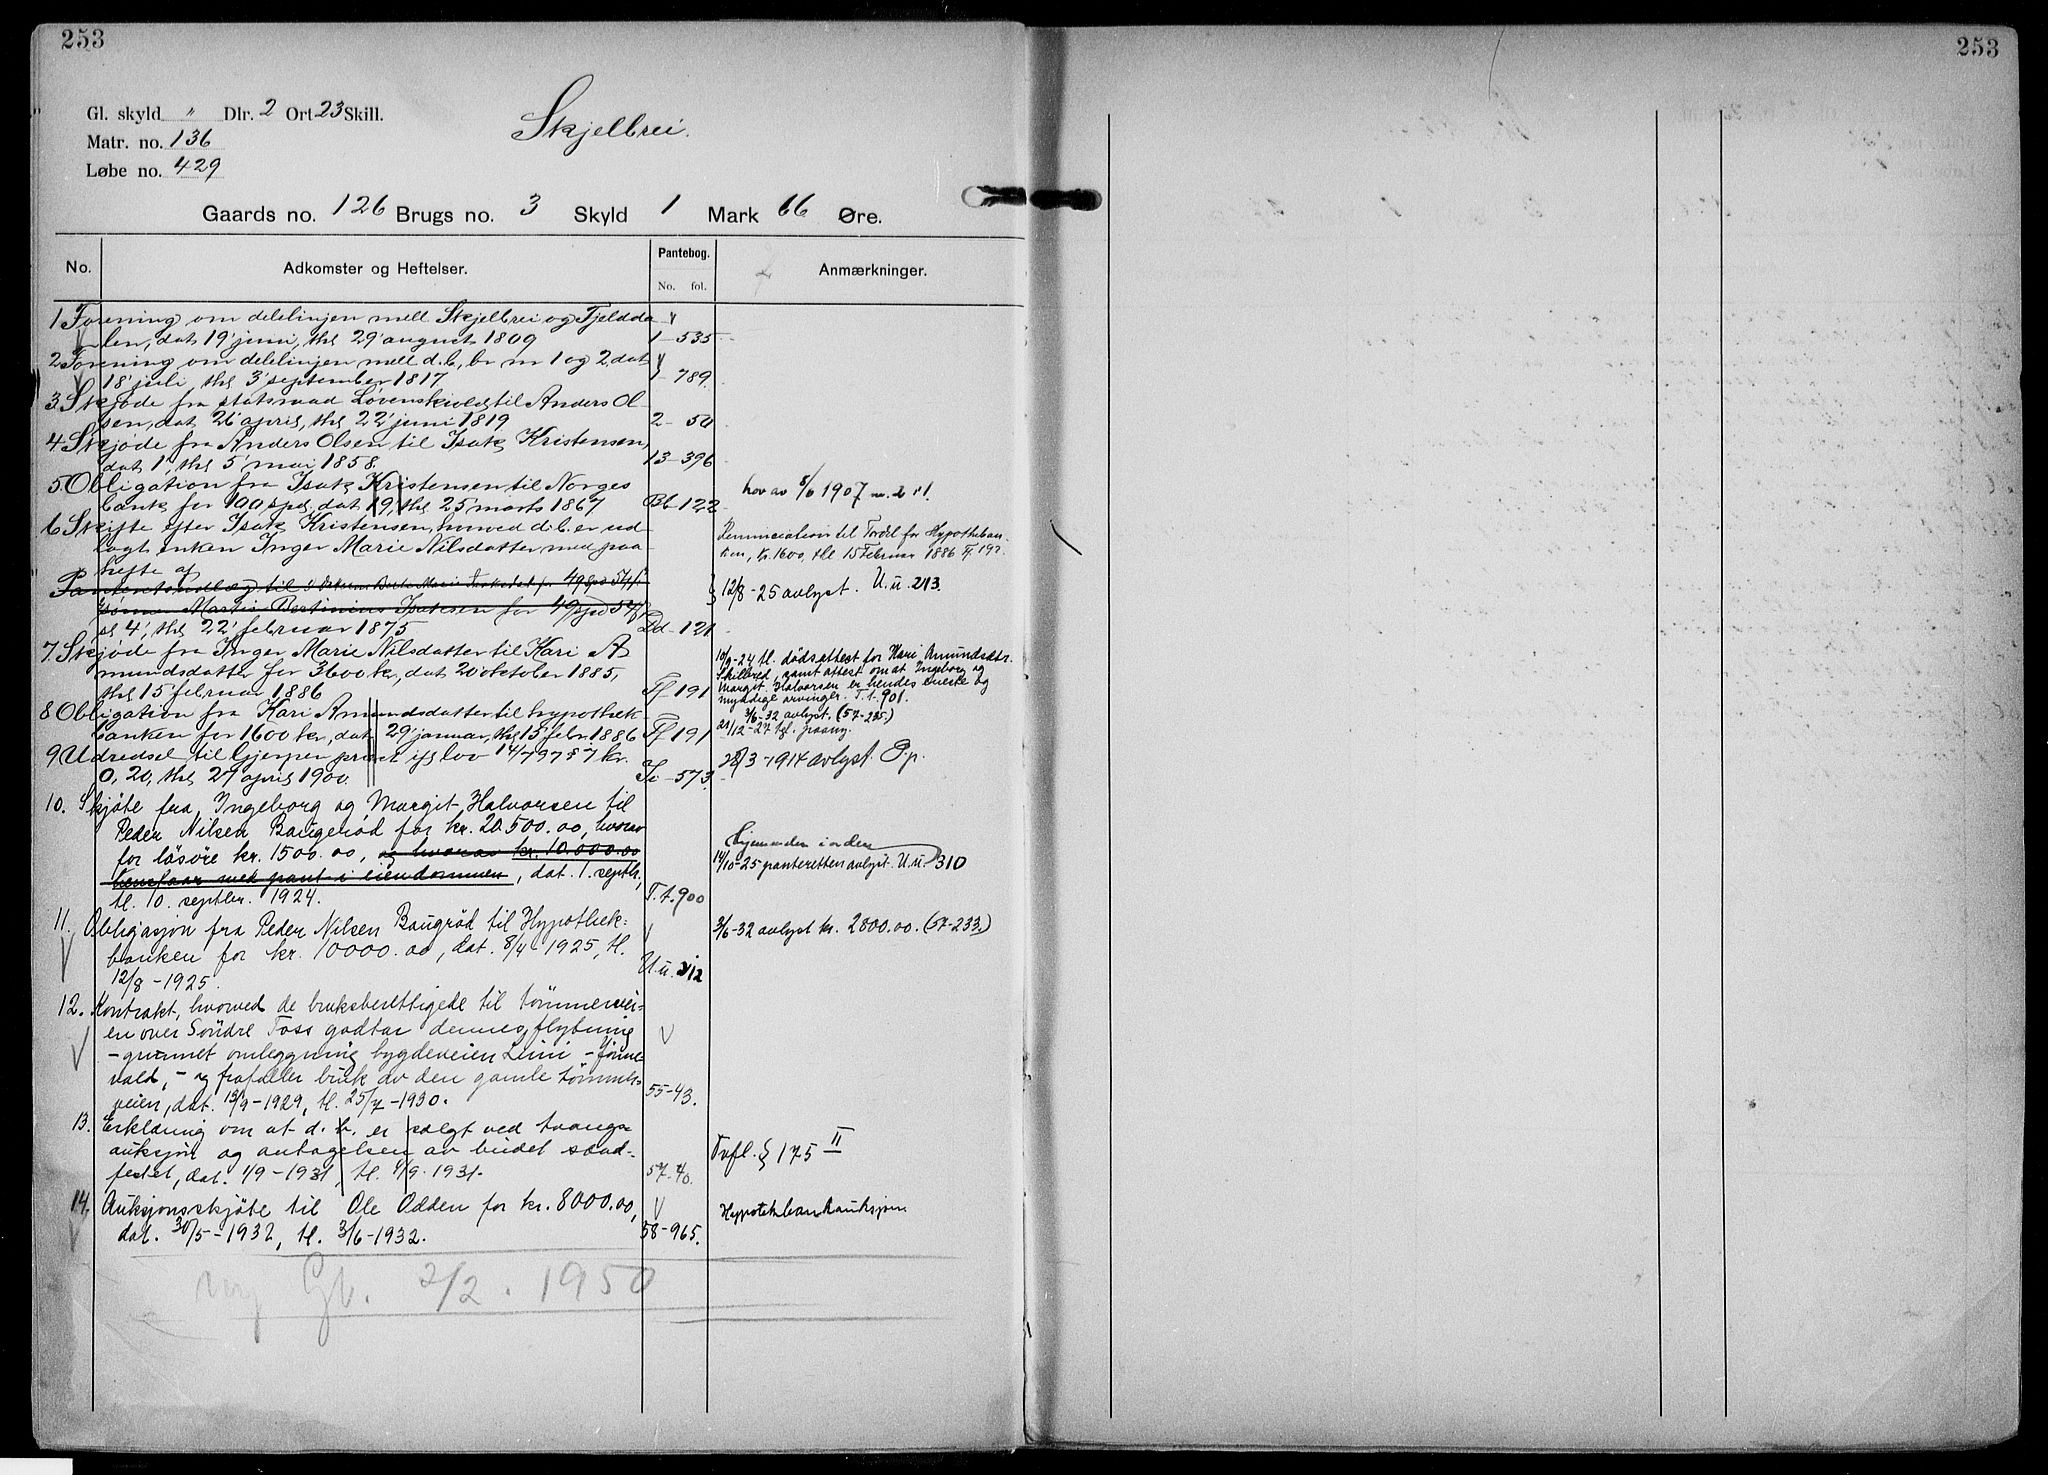 253
253
Gl. skyld " Dlr. 2 Ort 23 Skill.
Matr. no. 136
Løbe no. 429
Skjelbrei.
Gaards no. 126 Brugs no. 3 Skyld 1 Mark 66 Øre.
No. Adkomster og Heftelser. Pantebog. Anmærkninger.
No. fol.
1 Forening om delelinjen mell Skjelbrei og Fjeldda
len, dat 19' juni, thl 29' august 1809 1-535
2 Forening om delelinjen mell d.b, br nr 1 og 2, dat
18' juli, thl 3' september 1817. 1-789.
3 Skjøde fra statsraad Løvenskiold til Anders Ol-
sen, dat 26' april, thl 22' juni 1819 2-50
4 Skjøde fra Anders Olsen til Isak Kristensen,
dat 1', thl 5' mai 1858. 13-396
5 Obligation fra Isak Kristensen til Norges
bank for 100 spd, dat 19', thl 25' marts 1867 Bb-122 lov av 8/6 1907 nr. 2 § 1.
6 Skifte efter Isak Kristensen, hvorved d.b. er ud-
lagt enken Inger Marie Nilsdatter med paa-
hefte af
Panteretsudlæg til Berte Marie Isaksdat for 49 spd 54 s
sønnen Martin Bertinius Isaksen for 49 spd 54 s
sl 4', thl 22' februar 1875 Dd-121
Renunciation til Fordel for Hypotheban-
ken, kr. 1600, thl 15 Februar 1886 Ff. 192
12/8-25 avlyst. U.u. 213.
7 Skjøde fra Inger Marie Nilsdatter til Kari A
mundsdatter for 3600 kr, dat 20 oktober 1885,
thl 15 februar 1886 Ff-191
10/9-24 tl. dødsattest for Kari Amundsdtr.
Skilbred, samt attest om at Ingeborg og
Margit Halvorsen er hendes eneste og
myndige arvinger. T.t. 901.
8 Obligation fra Kari Amundsdatter til hypothek-
banken for 1600 kr, dat 29' januar, thl 15 febr 1886 Ff 191
3/6-32 avlyst. (57-235.)
21/12-27 tgl. paany.
9 Udredsel til Gjerpen præst ifl lov 14/7 97 § 7 kr.
0,20, thl 27 april 1900. Ii-573. 28/3-1914 avlyst. P.p.
10. Skjøte fra Ingeborg og Margit Halvorsen til
Peder Nilsen Baugerød for kr. 20.500.00, hvorav
for løsøre kr. 1500.00, og hvorav kr. 10.000.00
henstaar med pant i eiendommen, dat. 1. septbr.,
tl. 10. septbr. 1924. T.t. 900
Hjemmelen i orden
14/10-25 panteretten avlyst. U.u. 310
11. Obligasjon fra Peder Nilsen Baugrød til Hypothek-
banken for kr. 10000.00, dat. 8/4-1925, tl.
12/8-1925. U.u. 212
3/6-32 avlyst kr. 2800.00. (57-233.)
12. Kontrakt, hvorved de bruksberettigede til tømmervei-
en over Søndre Foss godtar dennes flytning
-grunnet omleggning bygdeveien Luni - Jønne-
vald, - og frafaller bruk av den gamle tømmer-
veien, dat. 13/9-1929, tl. 25/7-1930. 55-43.
13. Erklæring om at d. b. er solgt ved tvangs-
auksjon og antagelsen av budet stad-
festet, dat. 1/9-1931, tl. 4/9-1931. 57-40. Tvfl. § 175 II
14. Auksjonsskjøte til Ole Odden for kr. 8000.00,
dat. 30/5-1932, tl. 3/6-1932. 58-965. Hypotekbankauksjon
ny Gb. 2/2. 1950